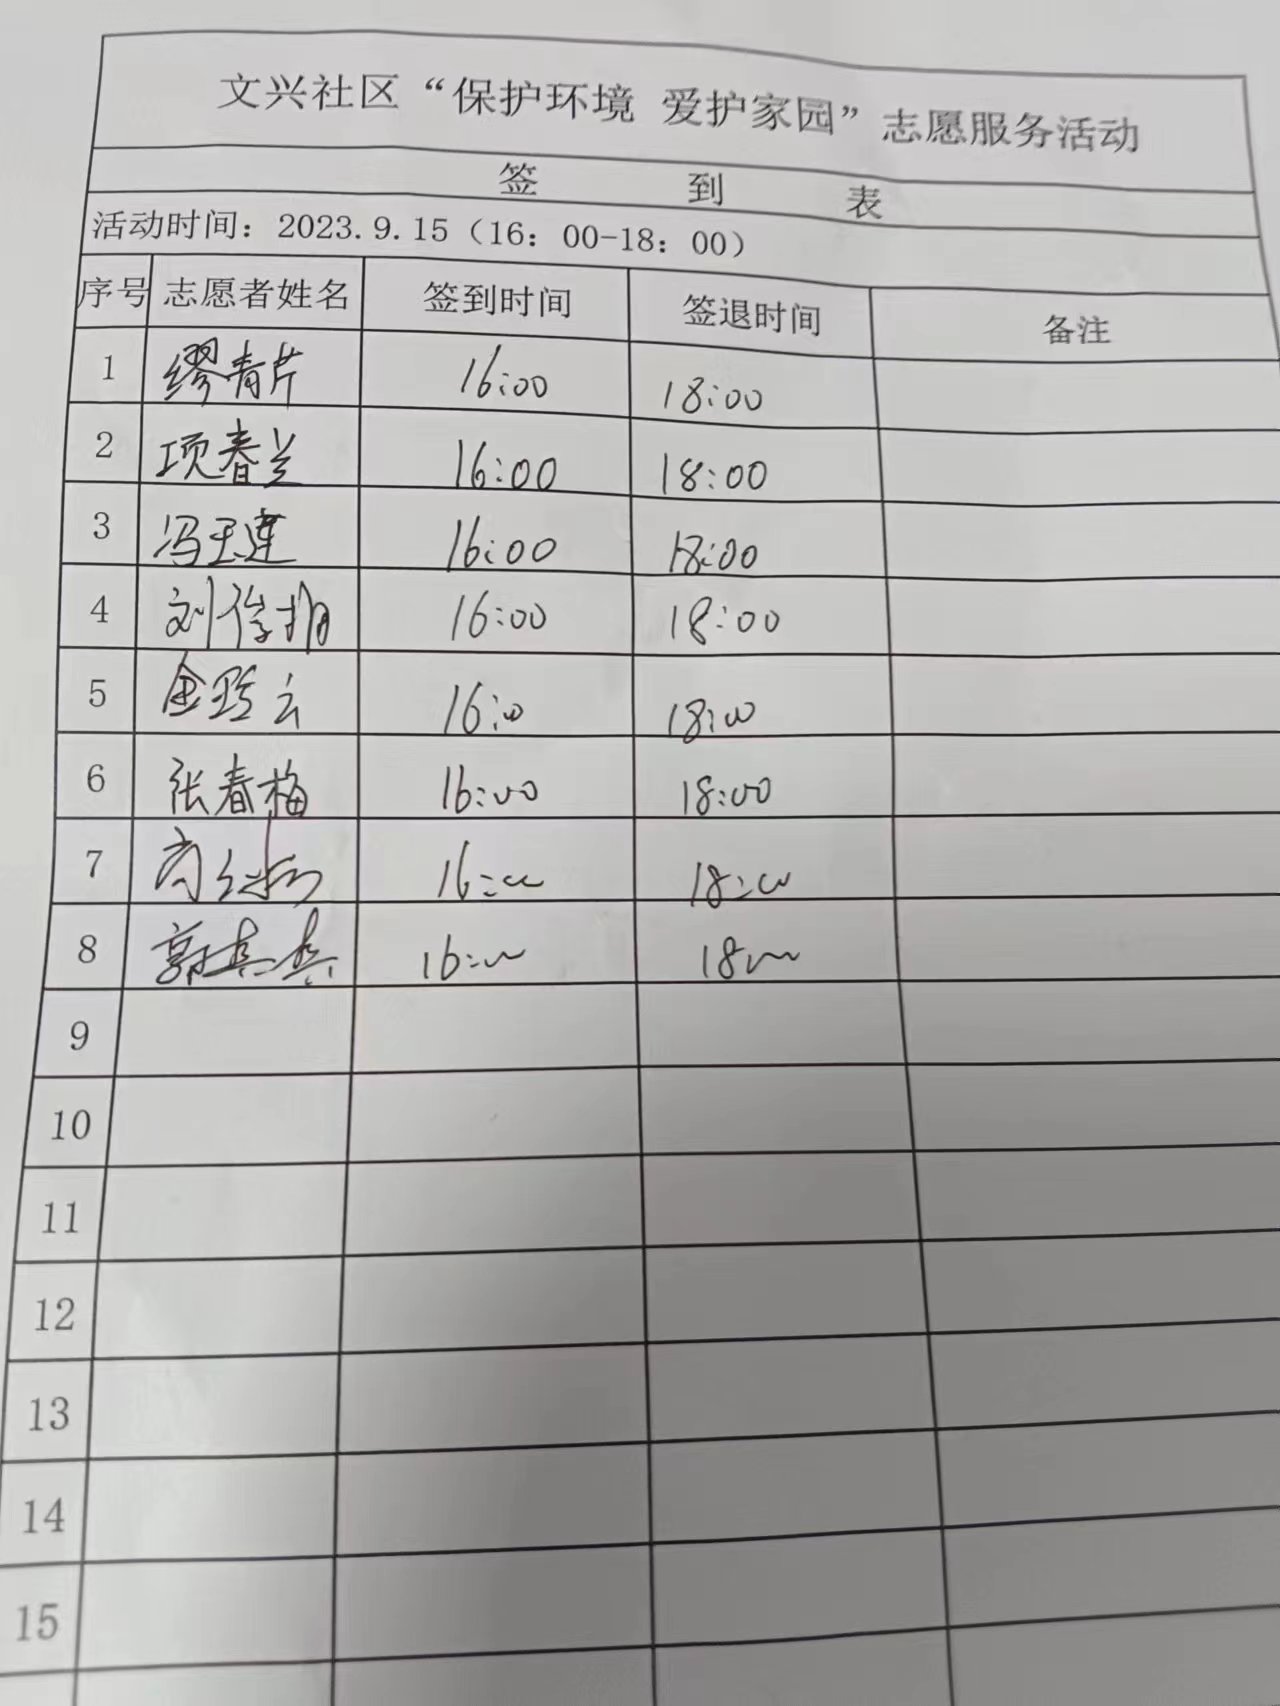 文兴社区“保护环境 爱护家园”志愿服务活动
签 到 表
活动时间：2023.9.15（16：00-18：00）
序号 志愿者姓名 签到时间 签退时间 备注
1 缪青芹 16:00 18:00
2 项春兰 16:00 18:00
3 冯玉莲 16:00 18:00
4 刘俊 16:00 18:00
5 金玲云 16:00 18:00
6 张春梅 16:00 18:00
7 16:00 18:00
8 郭真真 16:00 18:00
9
10
11
12
13
14
15